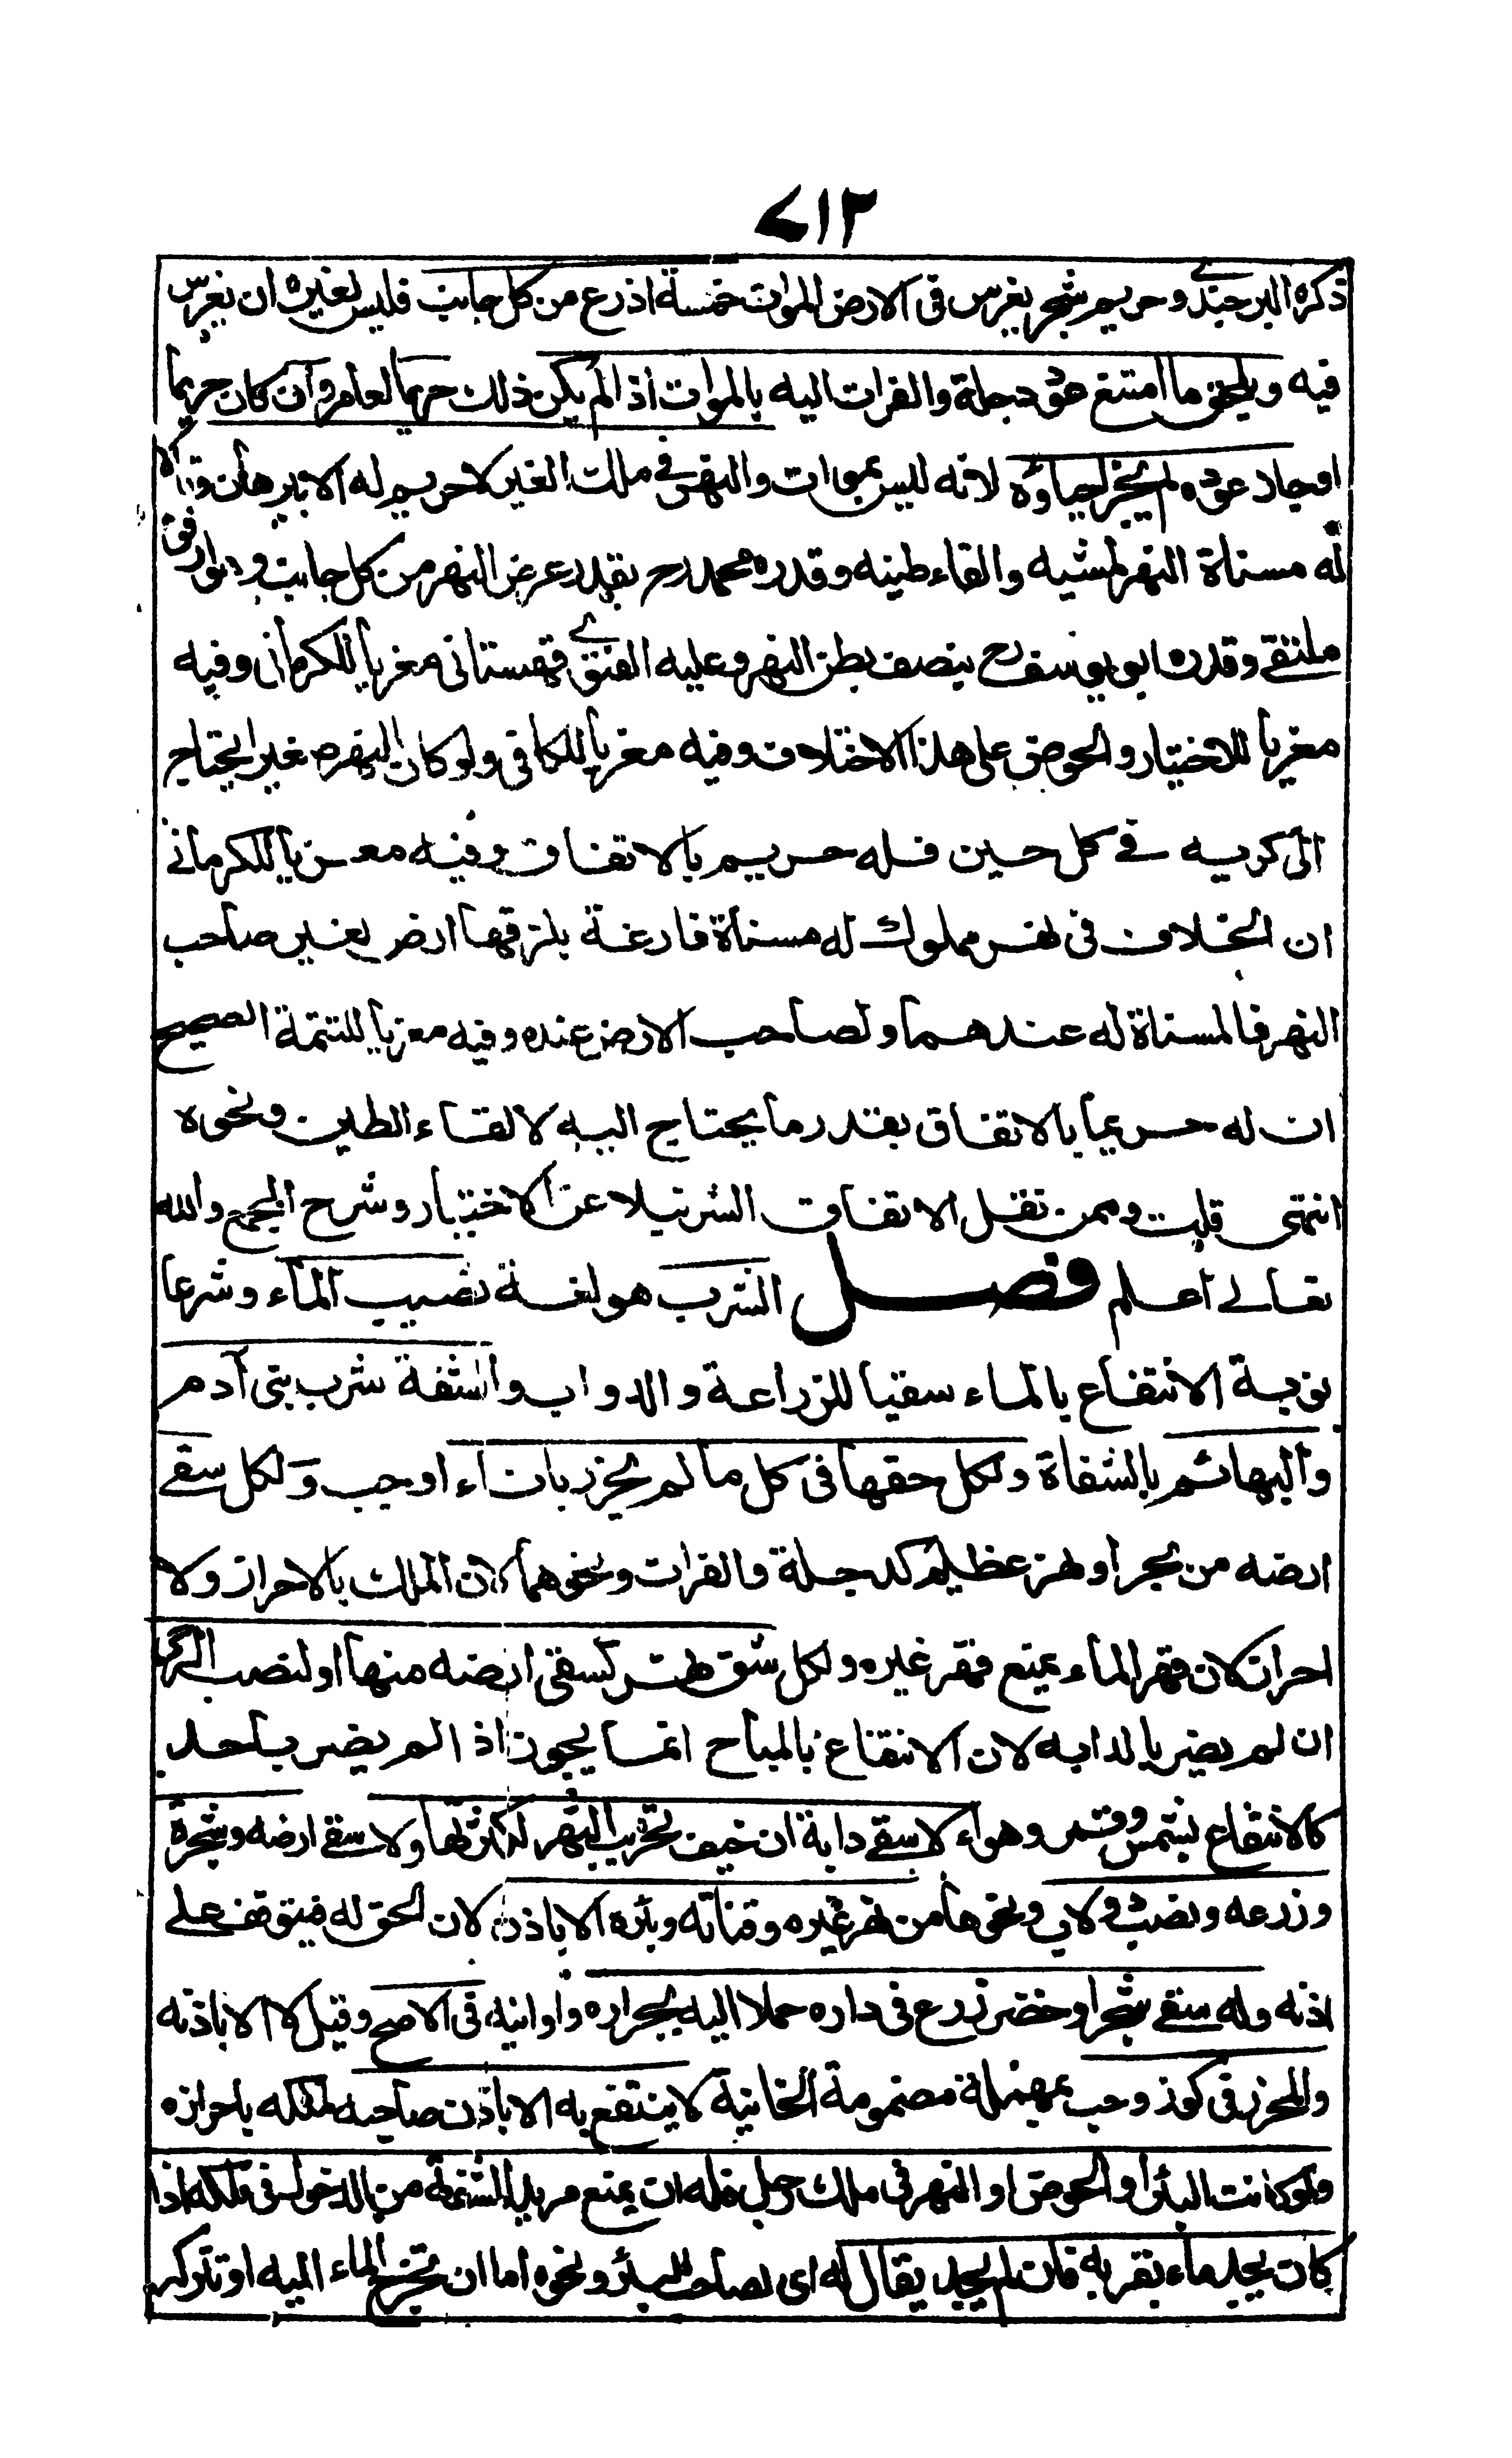 ٧١٢
ذكره البرجندي وحريم شجر يغرس في الارض الموات خمسة اذرع من كل جانب فليس لغيره ان يغرس
فيه ويلحق ما امتنع عود دجلة والفرات اليه بالموات اذا لم يكن ذلك حريما لعامر وان كان حريما
او جاز عوده لم يجز احياؤه لانه ليس بموات والنهر في ملك الغير لا حريم له الا ببرهان وقالا
له مسناة النهر لمشيه والقاء طينه وقدره محمد رح بقدر عرض النهر من كل جانب وهو ارفق
ملتقى وقدره ابو يوسف رح بنصف بطن النهر وعليه الفتوى قهستاني معزيا للكرماني وفيه
معزيا للاختيار والحوض على هذا الاختلاف وفيه معزيا للكافي ولو كان النهر صغيرا يحتاج
الى كريه في كل حين فله حريم بالاتفاق وفيه معزيا للكرماني
ان الخلاف في نهر مملوك له مسناة فارغة يلزقها ارض لغير صاحب
النهر فالمسناة له عندهما ولصاحب الارض عنده وفيه معزيا للتتمة الصحيح
ان له حريما بالاتفاق بقدر ما يحتاج اليه لالقاء الطين ونحوه
انتهى قلت وممن نقل الاتفاق الشرنبلالي عن الاختيار وشرح المجمع والله
تعالى اعلم فصل الشرب هو لغة نصيب الماء وشرعا
نوبة الانتفاع بالماء سقيا للزراعة والدواب والشفة شرب بني آدم
والبهائم بالشفاة ولكل حقها في كل ما لم يحرز باناء او حب ولكل سقي
ارضه من بحر او نهر عظيم كدجلة والفرات ونحوهما لان الملك بالاحراز ولا
احراز لان قهر الماء يمنع قهر غيره ولكل شق نهر لسقي ارضه منها او لنصب الرحى
ان لم يضر بالعامة لان الانتفاع بالمباح انما يجوز اذا لم يضر باحد
كالانتفاع بشمس وقمر وهواء لا سقي دابة ان خيف تخريب النهر لكثرتها ولا سقي ارضه وشجره
وزرعه ونصب دولاب ونحوها من نهر غيره وقناته وبئره الا باذنه لان الحق له فيتوقف على
اذنه وله سقي شجر او خضر زرع في داره حملا اليه بجراره واوانيه في الاصح وقيل لا الا باذنه
والمحرز في كوز وحب بمهملة مضمومة الخابية لا ينتفع به الا باذن صاحبه لملكه باحرازه
ولو كانت البئر او الحوض او النهر في ملك رجل فله ان يمنع مريد الشفة من الدخول في ملكه اذا
كان يجد ماء بقربه فان لم يجد يقال له اي لصاحب البئر ونحوه اما ان تخرج الماء اليه او تتركه